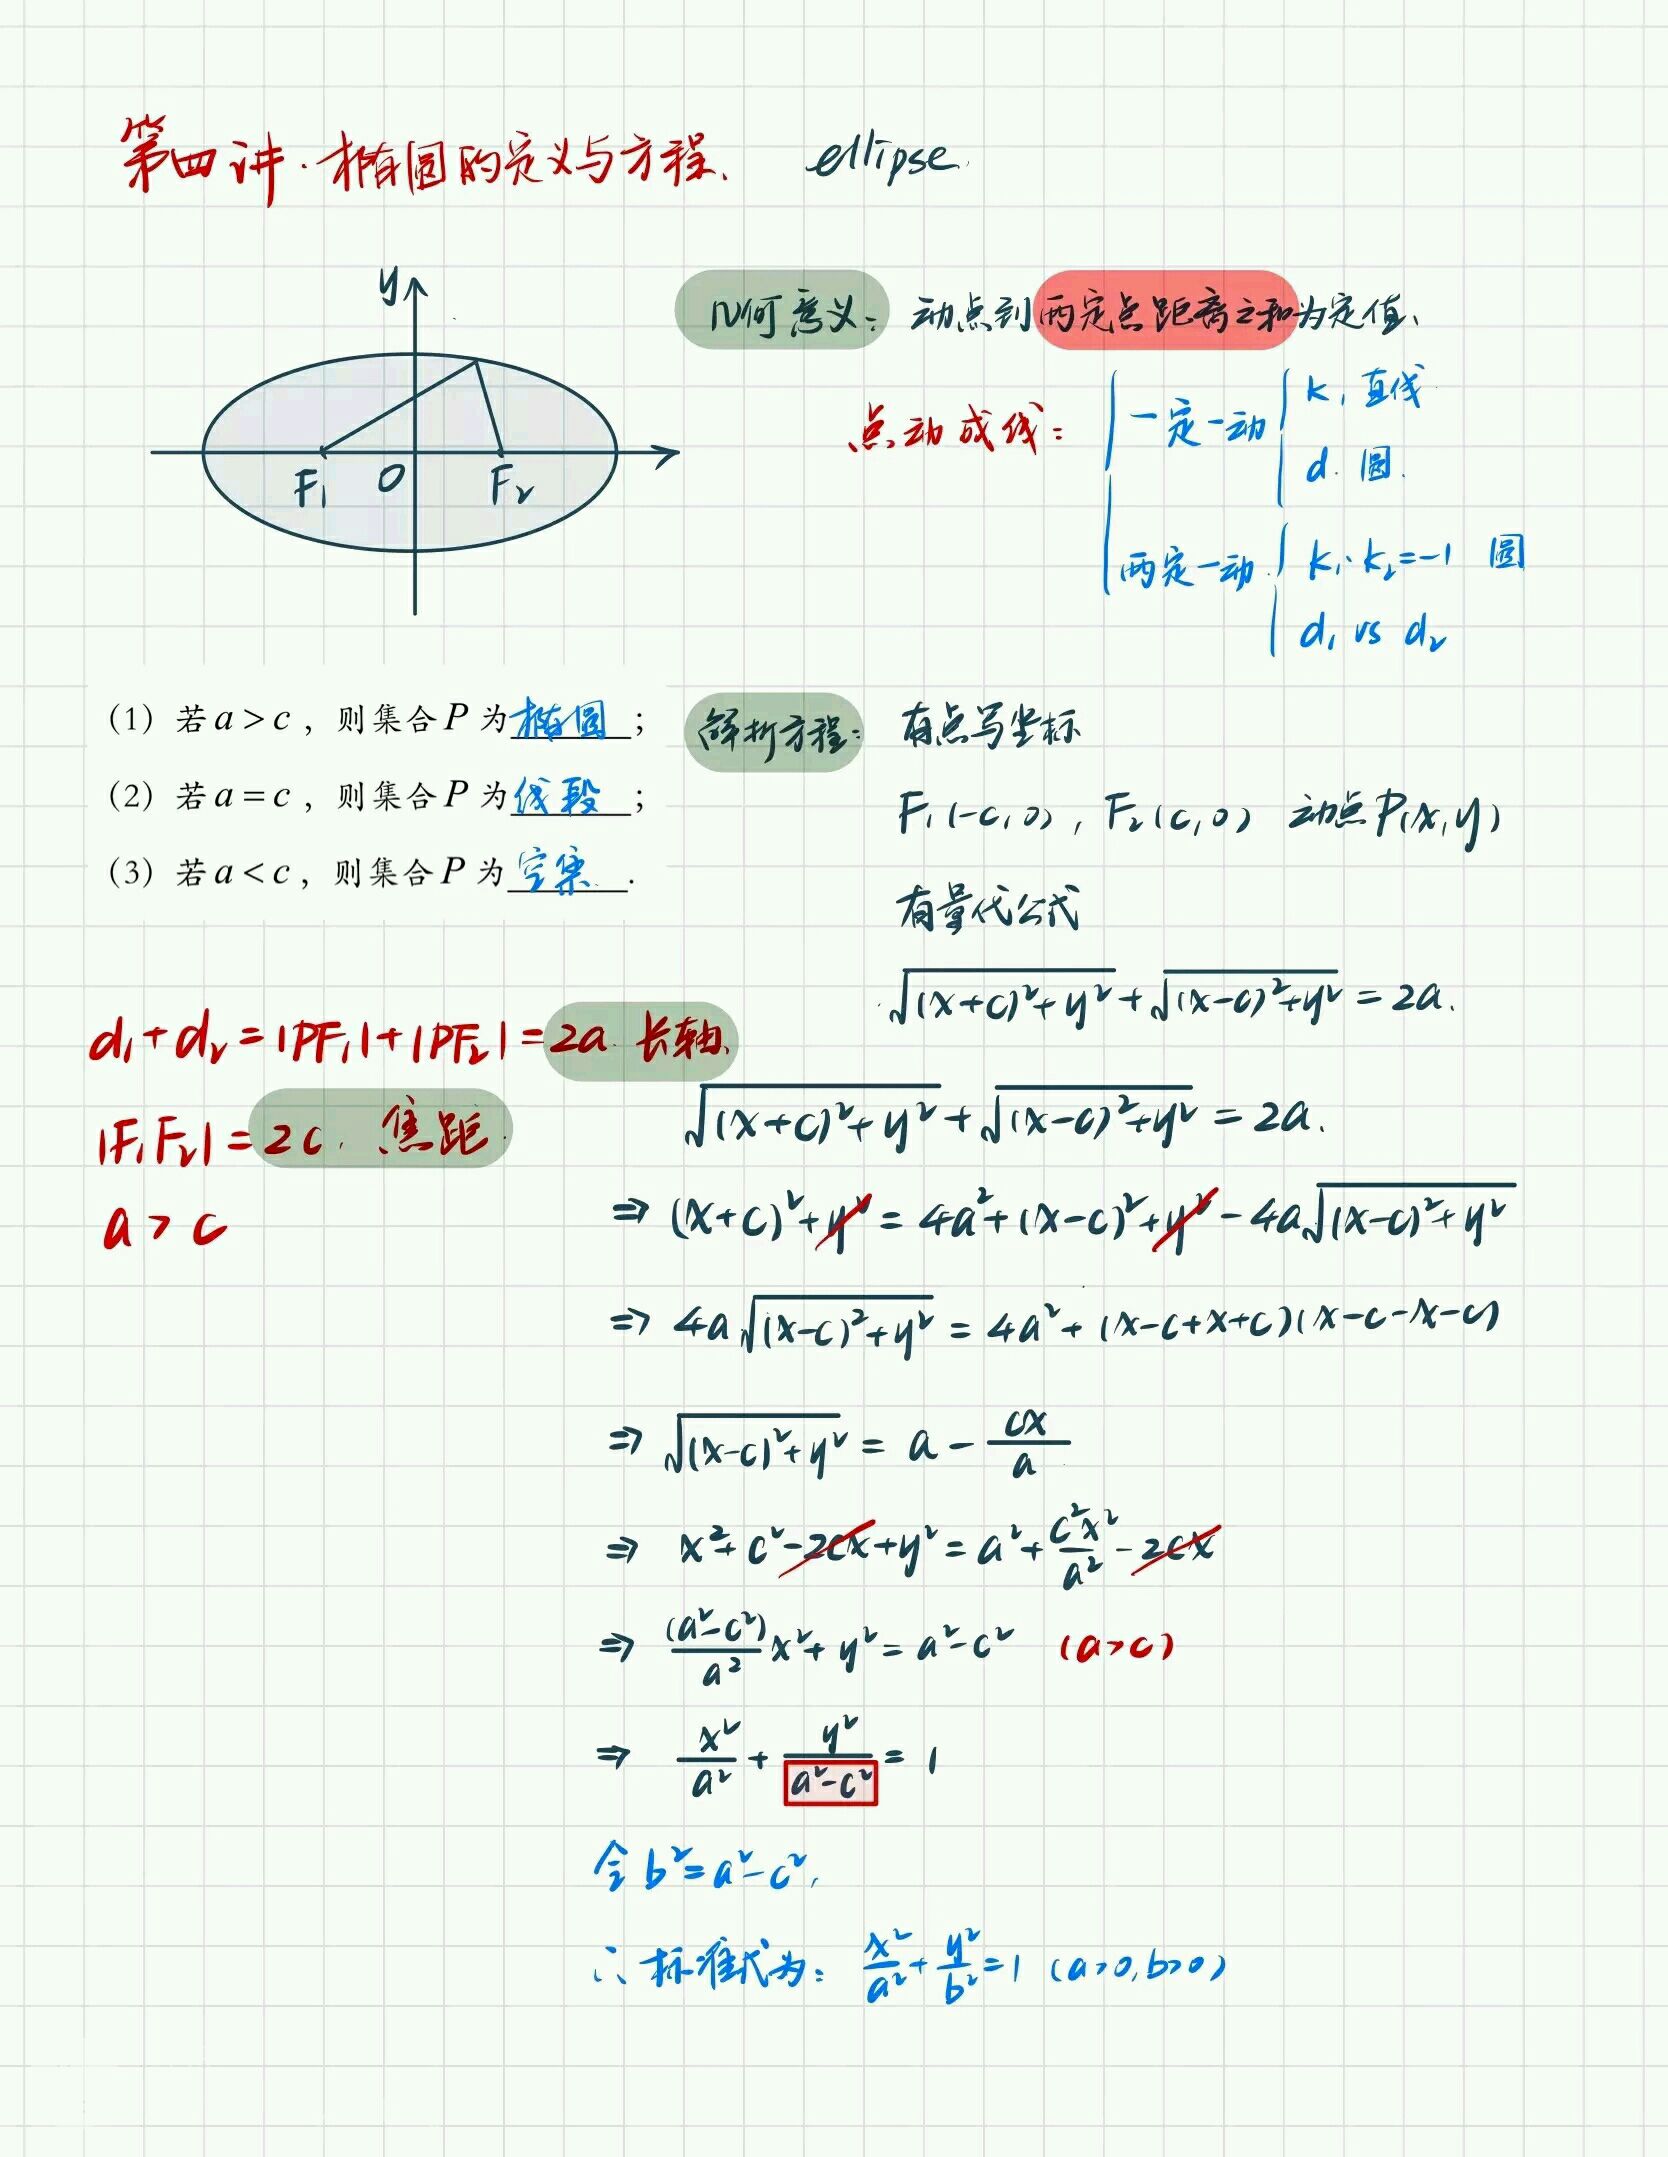 第四讲·椭圆的定义与方程. ellipse.
y
F₁ O F₂
几何意义: 动点到两定点距离之和为定值.
点动成线:
一定一动 { k, 直线
d. 圆.
两定一动 { k₁·k₂=-1 圆
d₁ vs d₂
(1) 若a>c, 则集合P为椭圆;
(2) 若a=c, 则集合P为线段;
(3) 若a<c, 则集合P为空集.
解析方程: 有点写坐标
F₁(-c,0), F₂(c,0) 动点P(x,y)
有量代公式
√((x+c)²+y²)+√((x-c)²+y²)=2a.
d₁+d₂=|PF₁|+|PF₂|=2a 长轴.
|F₁F₂|=2c. 焦距.
a>c
√((x+c)²+y²)+√((x-c)²+y²)=2a.
⇒ (x+c)²+y²=4a²+(x-c)²+y²-4a√((x-c)²+y²)
⇒ 4a√((x-c)²+y²)=4a²+(x-c+x+c)(x-c-x-c)
⇒ √((x-c)²+y²)=a-cx/a
⇒ x²+c²-2cx+y²=a²+c²x²/a²-2cx
⇒ (a²-c²)/a² x²+y²=a²-c² (a>c)
⇒ x²/a²+y²/(a²-c²)=1
令b²=a²-c²,
∴标准式为: x²/a²+y²/b²=1 (a>0,b>0)